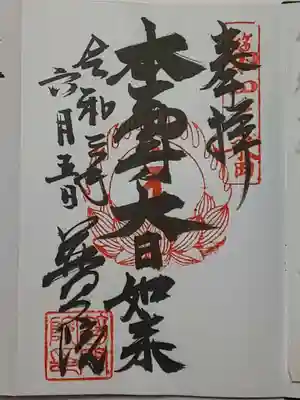 奉拝
本尊大日如来
令和三年
六月五日